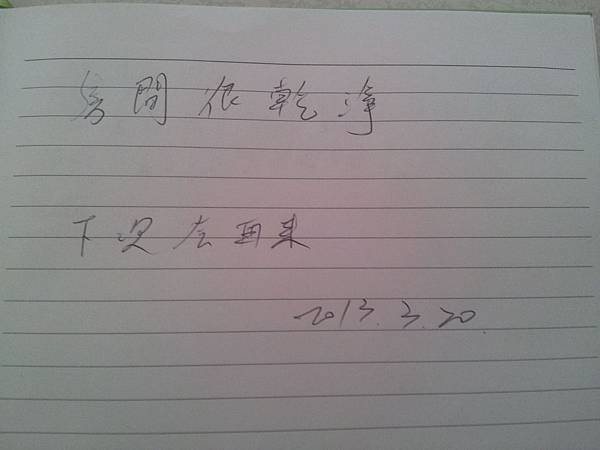 房間很乾淨
下次会再来
2013.3.20.